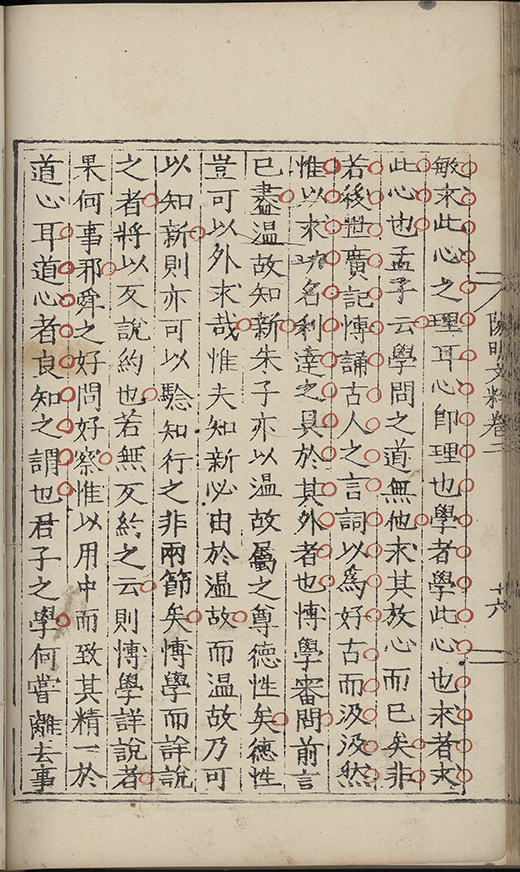 敏求此心之理耳心即理也學者學此心也求者求
此心也孟子云學問之道無他求其放心而已矣非
若後世廣記博誦古人之言詞以爲好古而汲汲然
惟以求功名利達之具於其外者也博學審問前言
已盡溫故知新朱子亦以溫故屬之尊德性矣德性
豈可以外求哉惟夫知新必由於溫故而溫故乃可
以知新則亦可以驗知行之非兩節矣博學而詳說
之者將以反說約也若無反約之云則博學詳說者
果何事邪舜之好問好察惟以用中而致其精一於
道心耳道心者良知之謂也君子之學何嘗離去事
陽明文粹卷二
十六